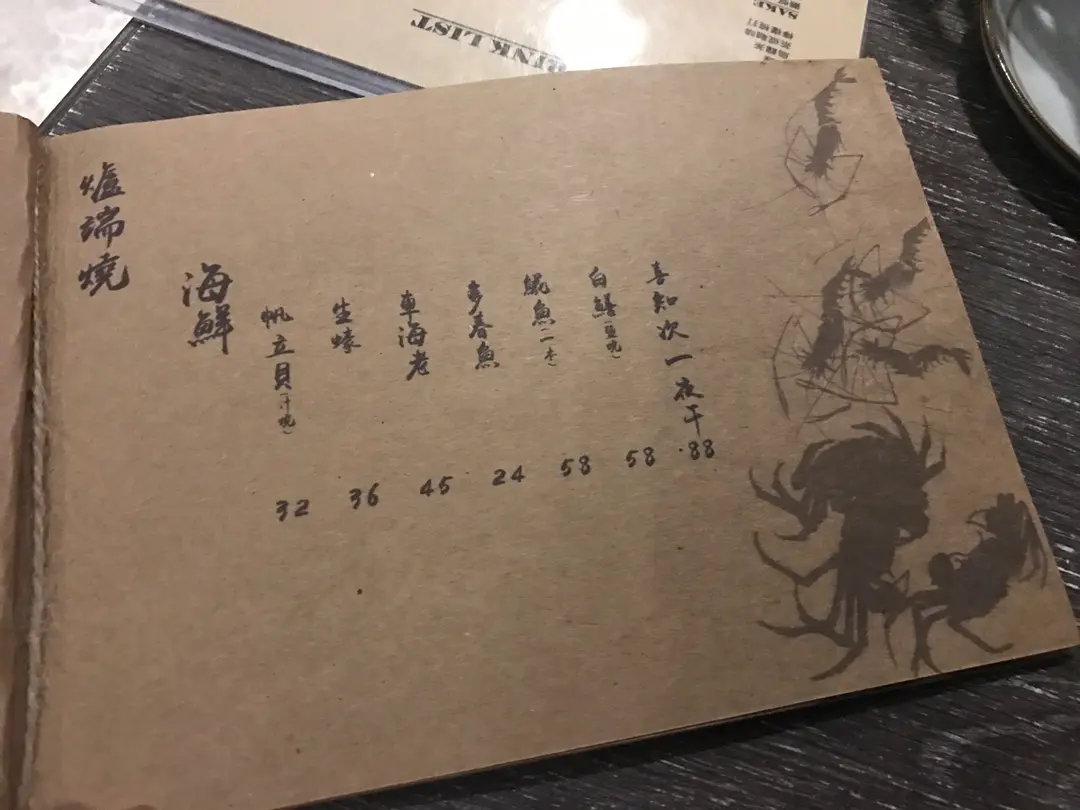 DRINK LIST
SAKE
爐端燒
海鮮
帆立貝(汁燒)
32
生蠔
36
車海老
45
多春魚
24
魷魚(一本)
58
白鱔(鹽燒)
58
喜知次一夜干
88